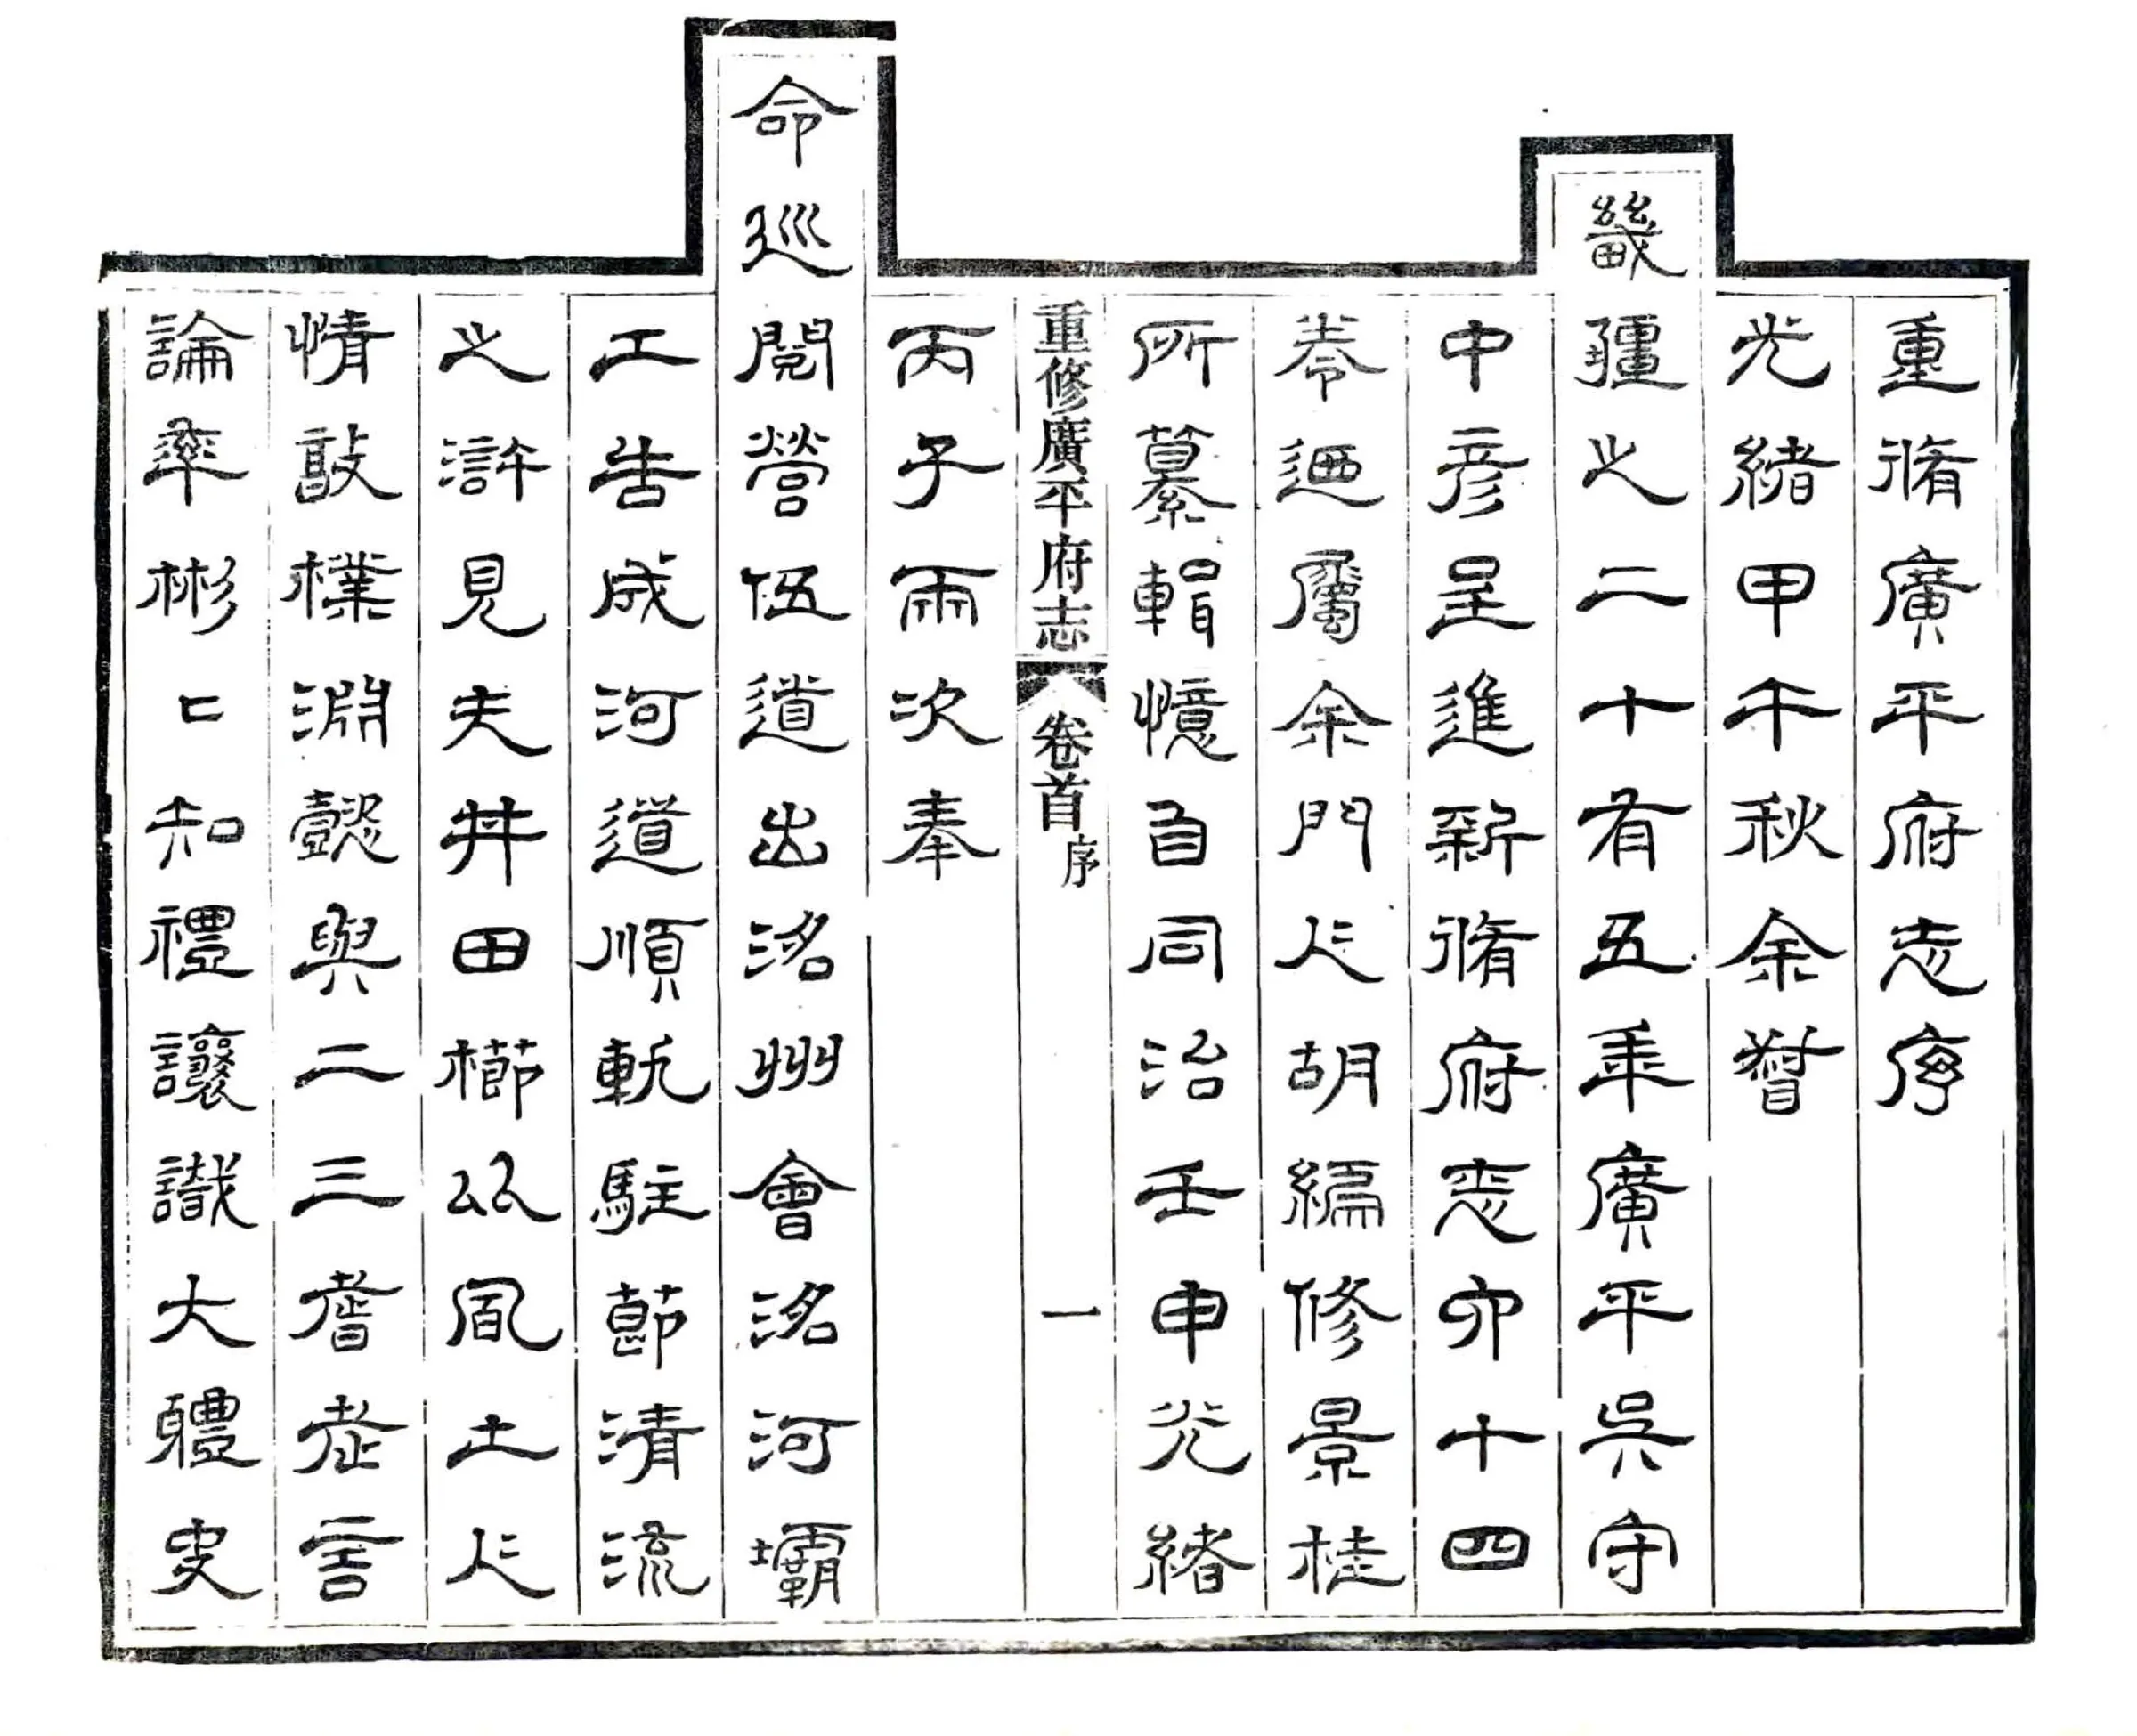 重脩廣平府志序
光緒甲午秋余督
畿疆之二十有五年廣平吳守
中彥呈進新脩府志卯十四
卷迺屬余門人胡編修景桂
所纂輯憶自同治壬申光緒
重修廣平府志 卷首 序 一
丙子兩次奉
命巡閱營伍道出洺州會洺河壩
工告成河道順軌駐節清流
之滸見夫井田櫛比風土人
情敦樸淵懿與二三耆老言
論率彬〻知禮讓識大體史